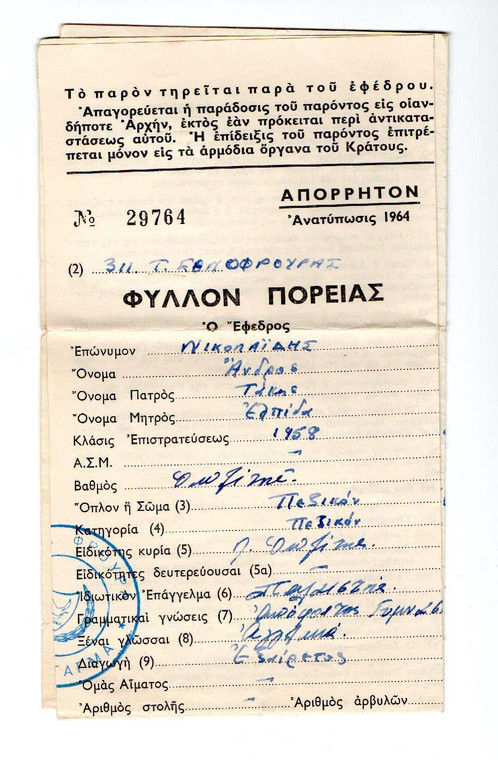 Τὸ παρὸν τηρεῖται παρὰ τοῦ ἐφέδρου.
Ἀπαγορεύεται ἡ παράδοσις τοῦ παρόντος εἰς οἱαν-
δήποτε Ἀρχήν, ἐκτὸς ἐὰν πρόκειται περὶ ἀντικατα-
στάσεως αὐτοῦ. Ἡ ἐπίδειξις τοῦ παρόντος ἐπιτρέ-
πεται μόνον εἰς τὰ ἁρμόδια ὄργανα τοῦ Κράτους.
ΑΠΟΡΡΗΤΟΝ
№ 29764 Ἀνατύπωσις 1964
(2) 311 Τ. ΕΘΝΟΦΡΟΥΡΑΣ
ΦΥΛΛΟΝ ΠΟΡΕΙΑΣ
Ὁ Ἔφεδρος
Ἐπώνυμον Νικολαΐδης
Ὄνομα Ἄνδρος
Ὄνομα Πατρὸς Τάκης
Ὄνομα Μητρὸς Ἐλπίδα
Κλάσις Ἐπιστρατεύσεως 1958
Α.Σ.Μ. –
Βαθμὸς
Ὅπλον ἢ Σῶμα (3) Πεζικόν
Κατηγορία (4) Πεζικόν
Εἰδικότης κυρία (5)
Εἰδικότητες δευτερεύουσαι (5α) –
Ἰδιωτικὸν Ἐπάγγελμα (6)
Γραμματικαὶ γνώσεις (7) Ἀπόφοιτος
Ξέναι γλῶσσαι (8) Ἀγγλικά.
Διαγωγὴ (9) Ἐξαίρετος
Ὁμὰς Αἵματος –
Ἀριθμὸς στολῆς – Ἀριθμὸς ἀρβυλῶν